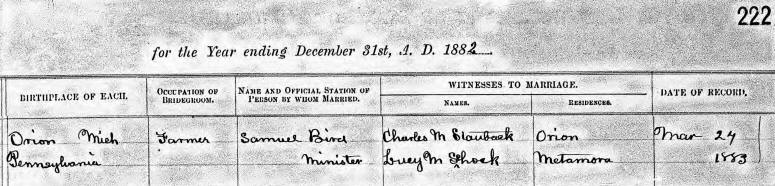 222
for the Year ending December 31st, A. D. 1882
BIRTHPLACE OF EACH. OCCUPATION OF BRIDEGROOM. NAME AND OFFICIAL STATION OF PERSON BY WHOM MARRIED. WITNESSES TO MARRIAGE. NAMES. RESIDENCES. DATE OF RECORD.
Orion Mich Farmer Samuel Bird Charles M Orion Mar 24
Pennsylvania Minister Lucy M Shock Metamora 1883